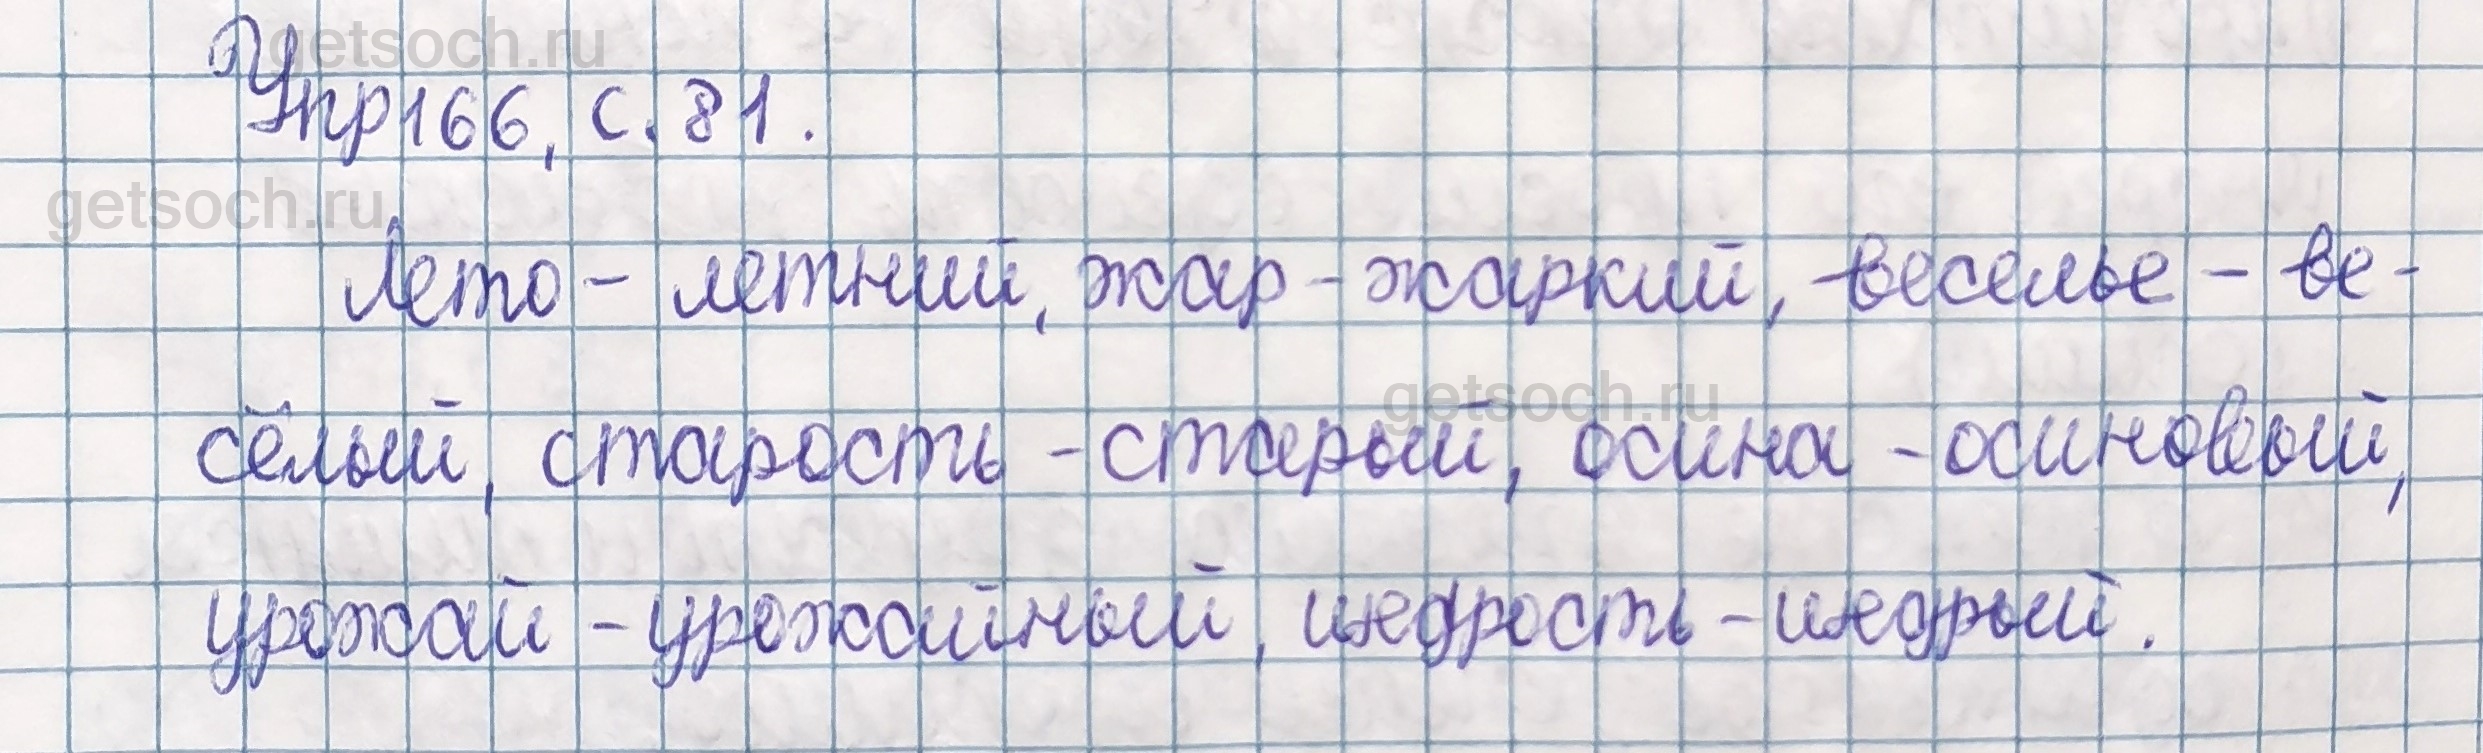 getsoch.ru
Упр166, с. 81.
getsoch.ru
Лето - летний, жар - жаркий, веселье - ве-
getsoch.ru
сёлый, старость - старый, осина - осиновый,
урожай - урожайный, щедрость - щедрый.